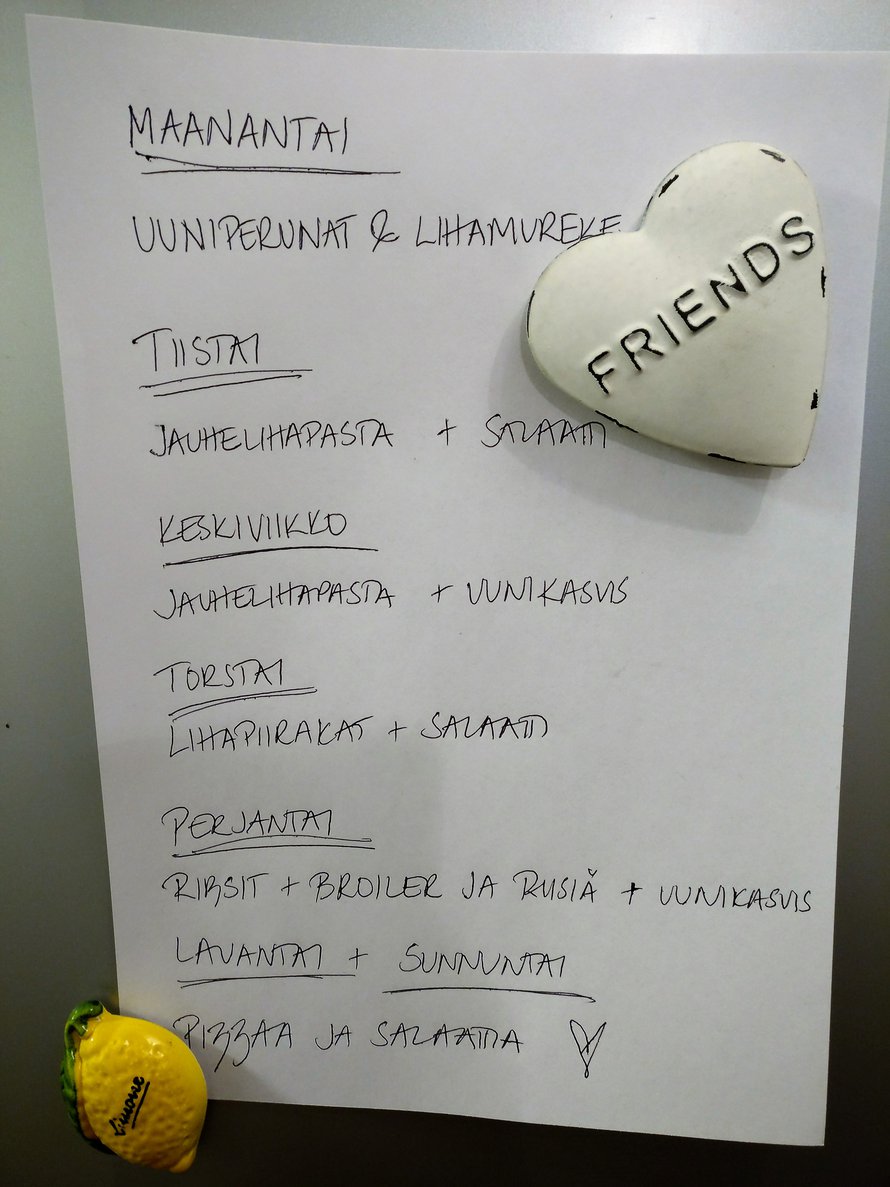 MAANANTAI
UUNIPERUNAT & LIHAMUREKE
FRIENDS
TIISTAI
JAUHELIHAPASTA + SALAATTI
KESKIVIIKKO
JAUHELIHAPASTA + UUNIKASVIS
TORSTAI
LIHAPIIRAKAT + SALAATTI
PERJANTAI
RIBSIT + BROILER JA RUSIÄ + UUNIKASVIS
LAUANTAI + SUNNUNTAI
PIZZAA JA SALAATTIA
Limone